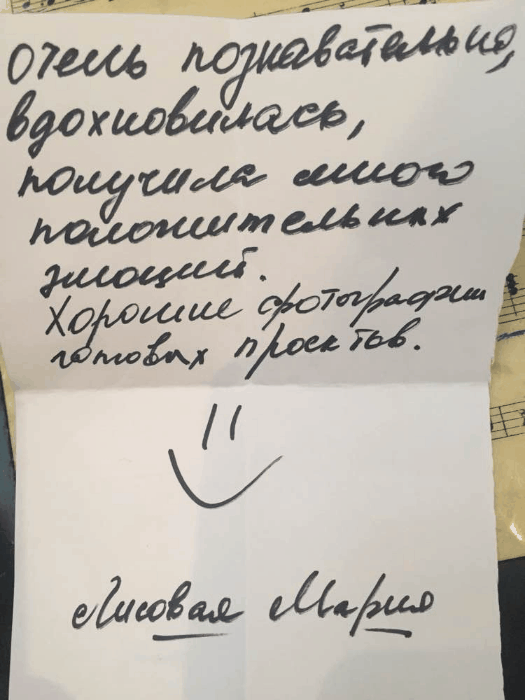 Очень познавательно,
вдохновилась,
получила много
положительных
эмоций.
Хорошие фотографии
готовых проектов.
Лисовая Мария